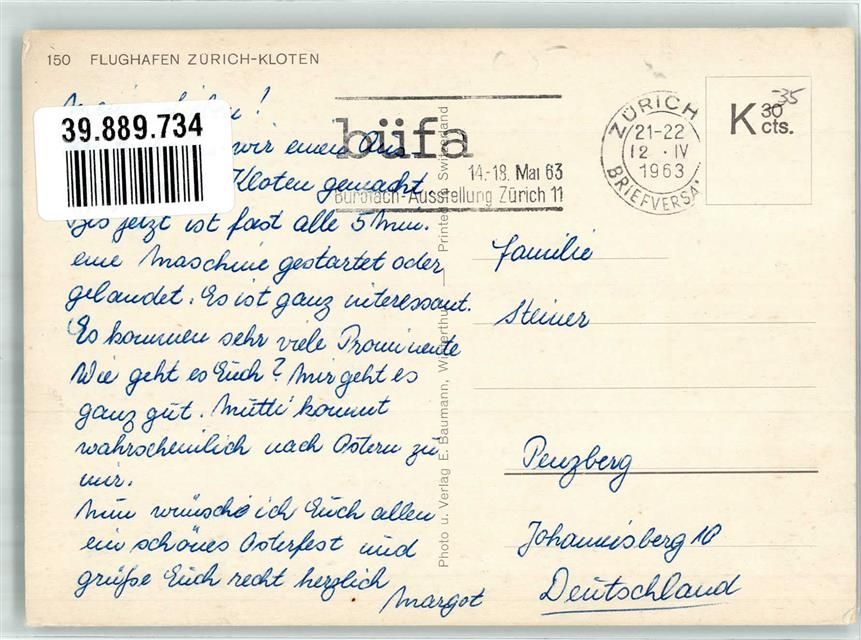 150 FLUGHAFEN ZÜRICH-KLOTEN
39.889.734
büfa
14.-18. Mai 63
Bürofach-Ausstellung Zürich 11
ZÜRICH
21-22
12 . IV
1963
BRIEFVERSA
K 30 cts.
35
!
wir einen
Kloten gemacht
Bis jetzt ist fast alle 5 Min.
eine Maschine gestartet oder
gelandet. Es ist ganz interessant.
Es kommen sehr viele Prominente
Wie geht es Euch? Mir geht es
ganz gut. Mutti kommt
wahrscheinlich nach Ostern zu
mir.
Nun wünsche ich Euch allen
ein schönes Osterfest und
grüße Euch recht herzlich
Margot
Photo u. Verlag E. Baumann, Winterthur — Printed in Switzerland
Familie
Steiner
Penzberg
Johannisberg 10
Deutschland